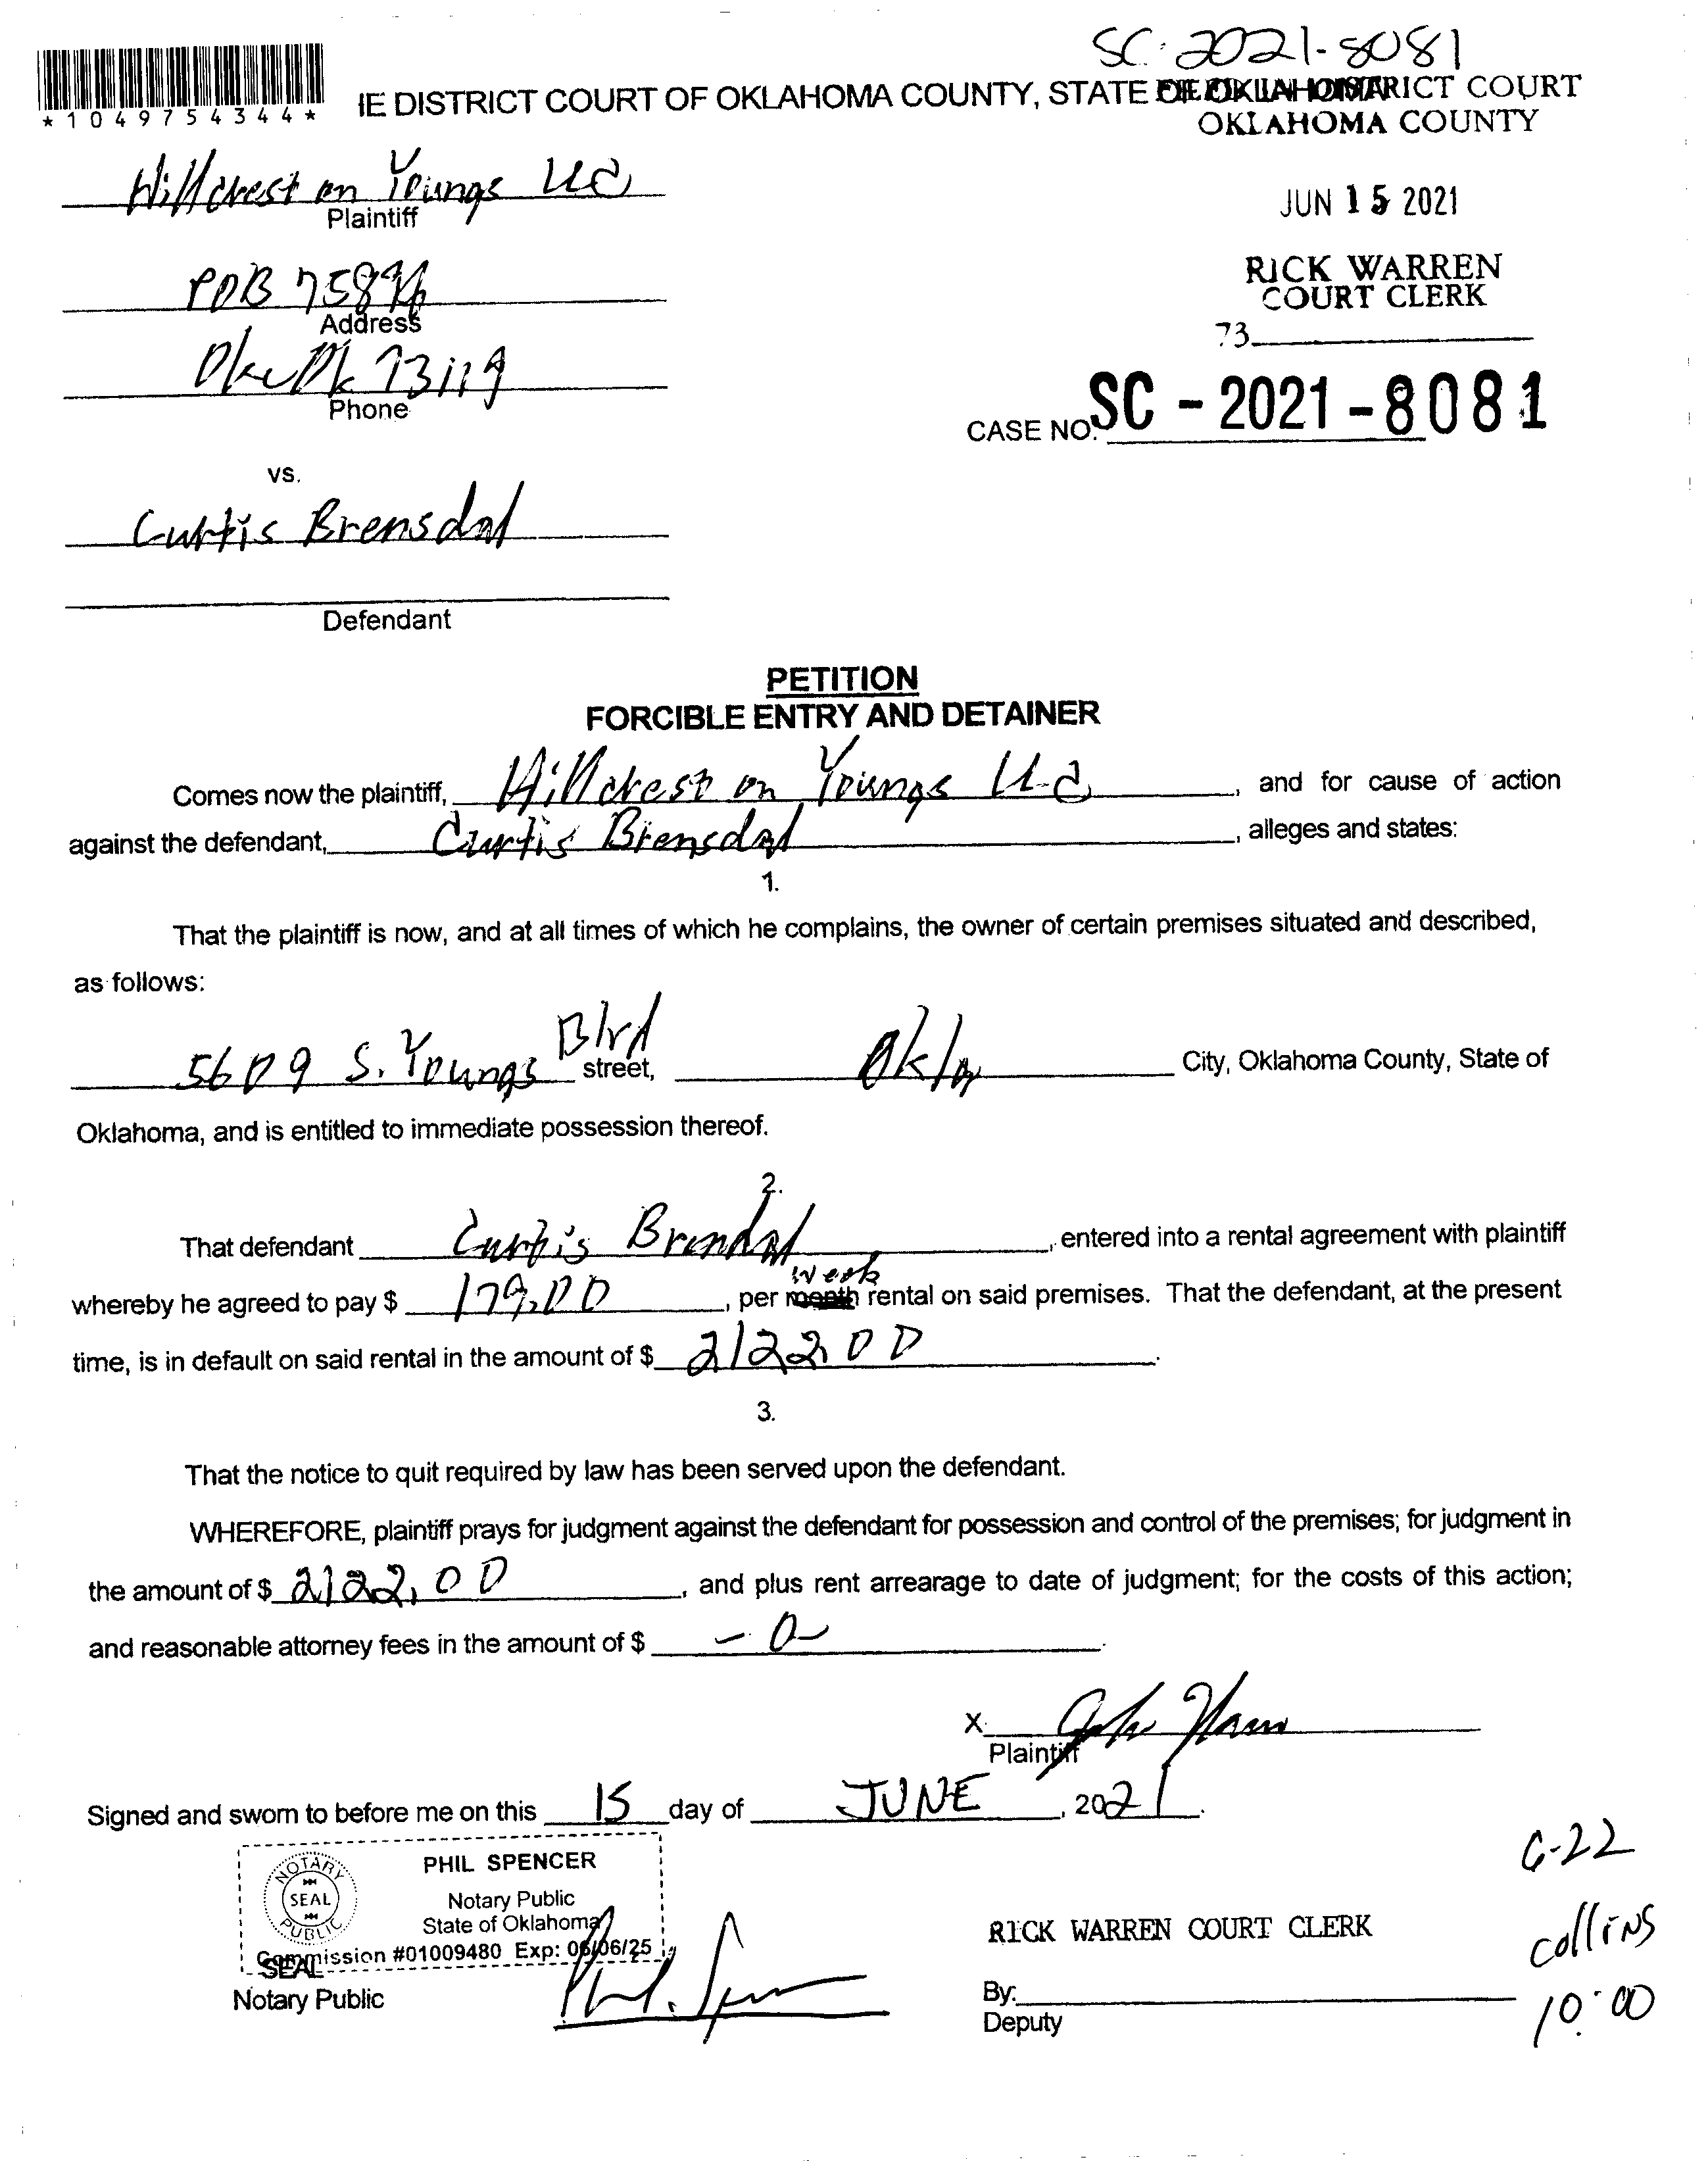 SC-2021-8081
*1049754344*
IE DISTRICT COURT OF OKLAHOMA COUNTY, STATE OF OKLAHOMA
FILED IN DISTRICT COURT
OKLAHOMA COUNTY
Hillcrest on Youngs LLC
Plaintiff
JUN 15 2021
RICK WARREN
COURT CLERK
73
POB
Address
Okc Ok 73119
Phone
CASE NO. SC - 2021 - 8081
vs.
Curtis Brensdal
Defendant
PETITION
FORCIBLE ENTRY AND DETAINER
Comes now the plaintiff, Hillcrest on Youngs LLC, and for cause of action
against the defendant, Curtis Brensdal, alleges and states:
1.
That the plaintiff is now, and at all times of which he complains, the owner of certain premises situated and described,
as follows:
5609 S. Youngs Blvd street, Okla City, Oklahoma County, State of
Oklahoma, and is entitled to immediate possession thereof.
2.
That defendant Curtis, entered into a rental agreement with plaintiff
whereby he agreed to pay $ 179.00, per month week rental on said premises. That the defendant, at the present
time, is in default on said rental in the amount of $ 2122.00.
3.
That the notice to quit required by law has been served upon the defendant.
WHEREFORE, plaintiff prays for judgment against the defendant for possession and control of the premises; for judgment in
the amount of $ 2122.00, and plus rent arrearage to date of judgment; for the costs of this action;
and reasonable attorney fees in the amount of $ -0-.
X
Plaintiff
Signed and sworn to before me on this 15 day of JUNE, 2021.
NOTARY PUBLIC SEAL
PHIL SPENCER
Notary Public
State of Oklahoma
Commission #01009480 Exp: 06/06/25
SEAL
Notary Public
Phil Spencer
RICK WARREN COURT CLERK
By:
Deputy
6-22
Collins
10:00